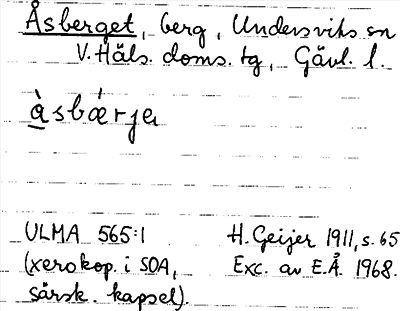 Åsberget, berg, Undersviks sn
V. Häls. doms. tg, Gävl. l.
åsbærja
ULMA 565:1 H. Geijer 1911, s. 65
(xerokop. i SOA, Exc. av E.Å. 1968.
särsk. kapsel).